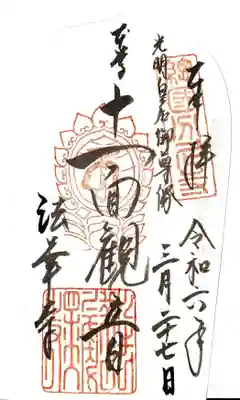 奉拝
令和六年
三月二十七日
光明皇后御尊像
本尊
十一面観音
法華寺